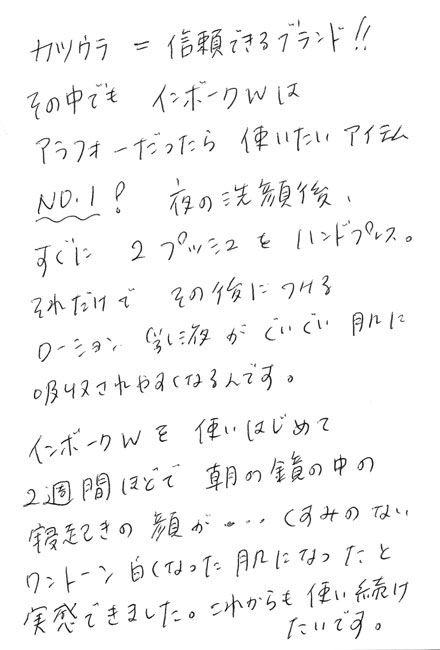 カツウラ = 信頼できるブランド!!
その中でも インボークWは
アラフォーだったら 使いたい アイテム
NO.1! 夜の洗顔後、
すぐに 2プッシュを ハンドプレス。
それだけで その後につける
ローション 乳液が ぐいぐい 肌に
吸収されやすくなるんです。
インボークWを 使いはじめて
2週間ほどで 朝の鏡の中の
寝起きの 顔が・・・ くすみのない
ワントーン 白くなった 肌になったと
実感できました。これからも 使い続け
たいです。